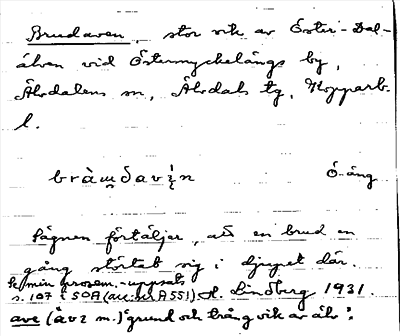 Brudaven, stor vik av Öster-Dal-
älven vid Östermyckelängs by,
Älvdalens sn, Älvdals tg, Kopparb.
l.
Ö-äng
Sägnen förtäljer, att en brud en
gång störtat sig i djupet där.
Se min prosem.-uppsats
s. 107 i SOA (acc.nr A551) A. Lindberg 1931.
ave (åvɛ m.) "grund och trång vik av älv".